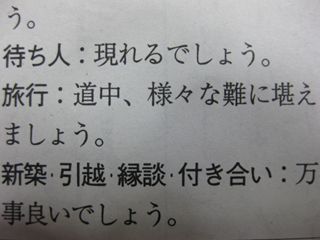 う。
待ち人：現れるでしょう。
旅行：道中、様々な難に堪え
ましょう。
新築・引越・縁談・付き合い：万
事良いでしょう。